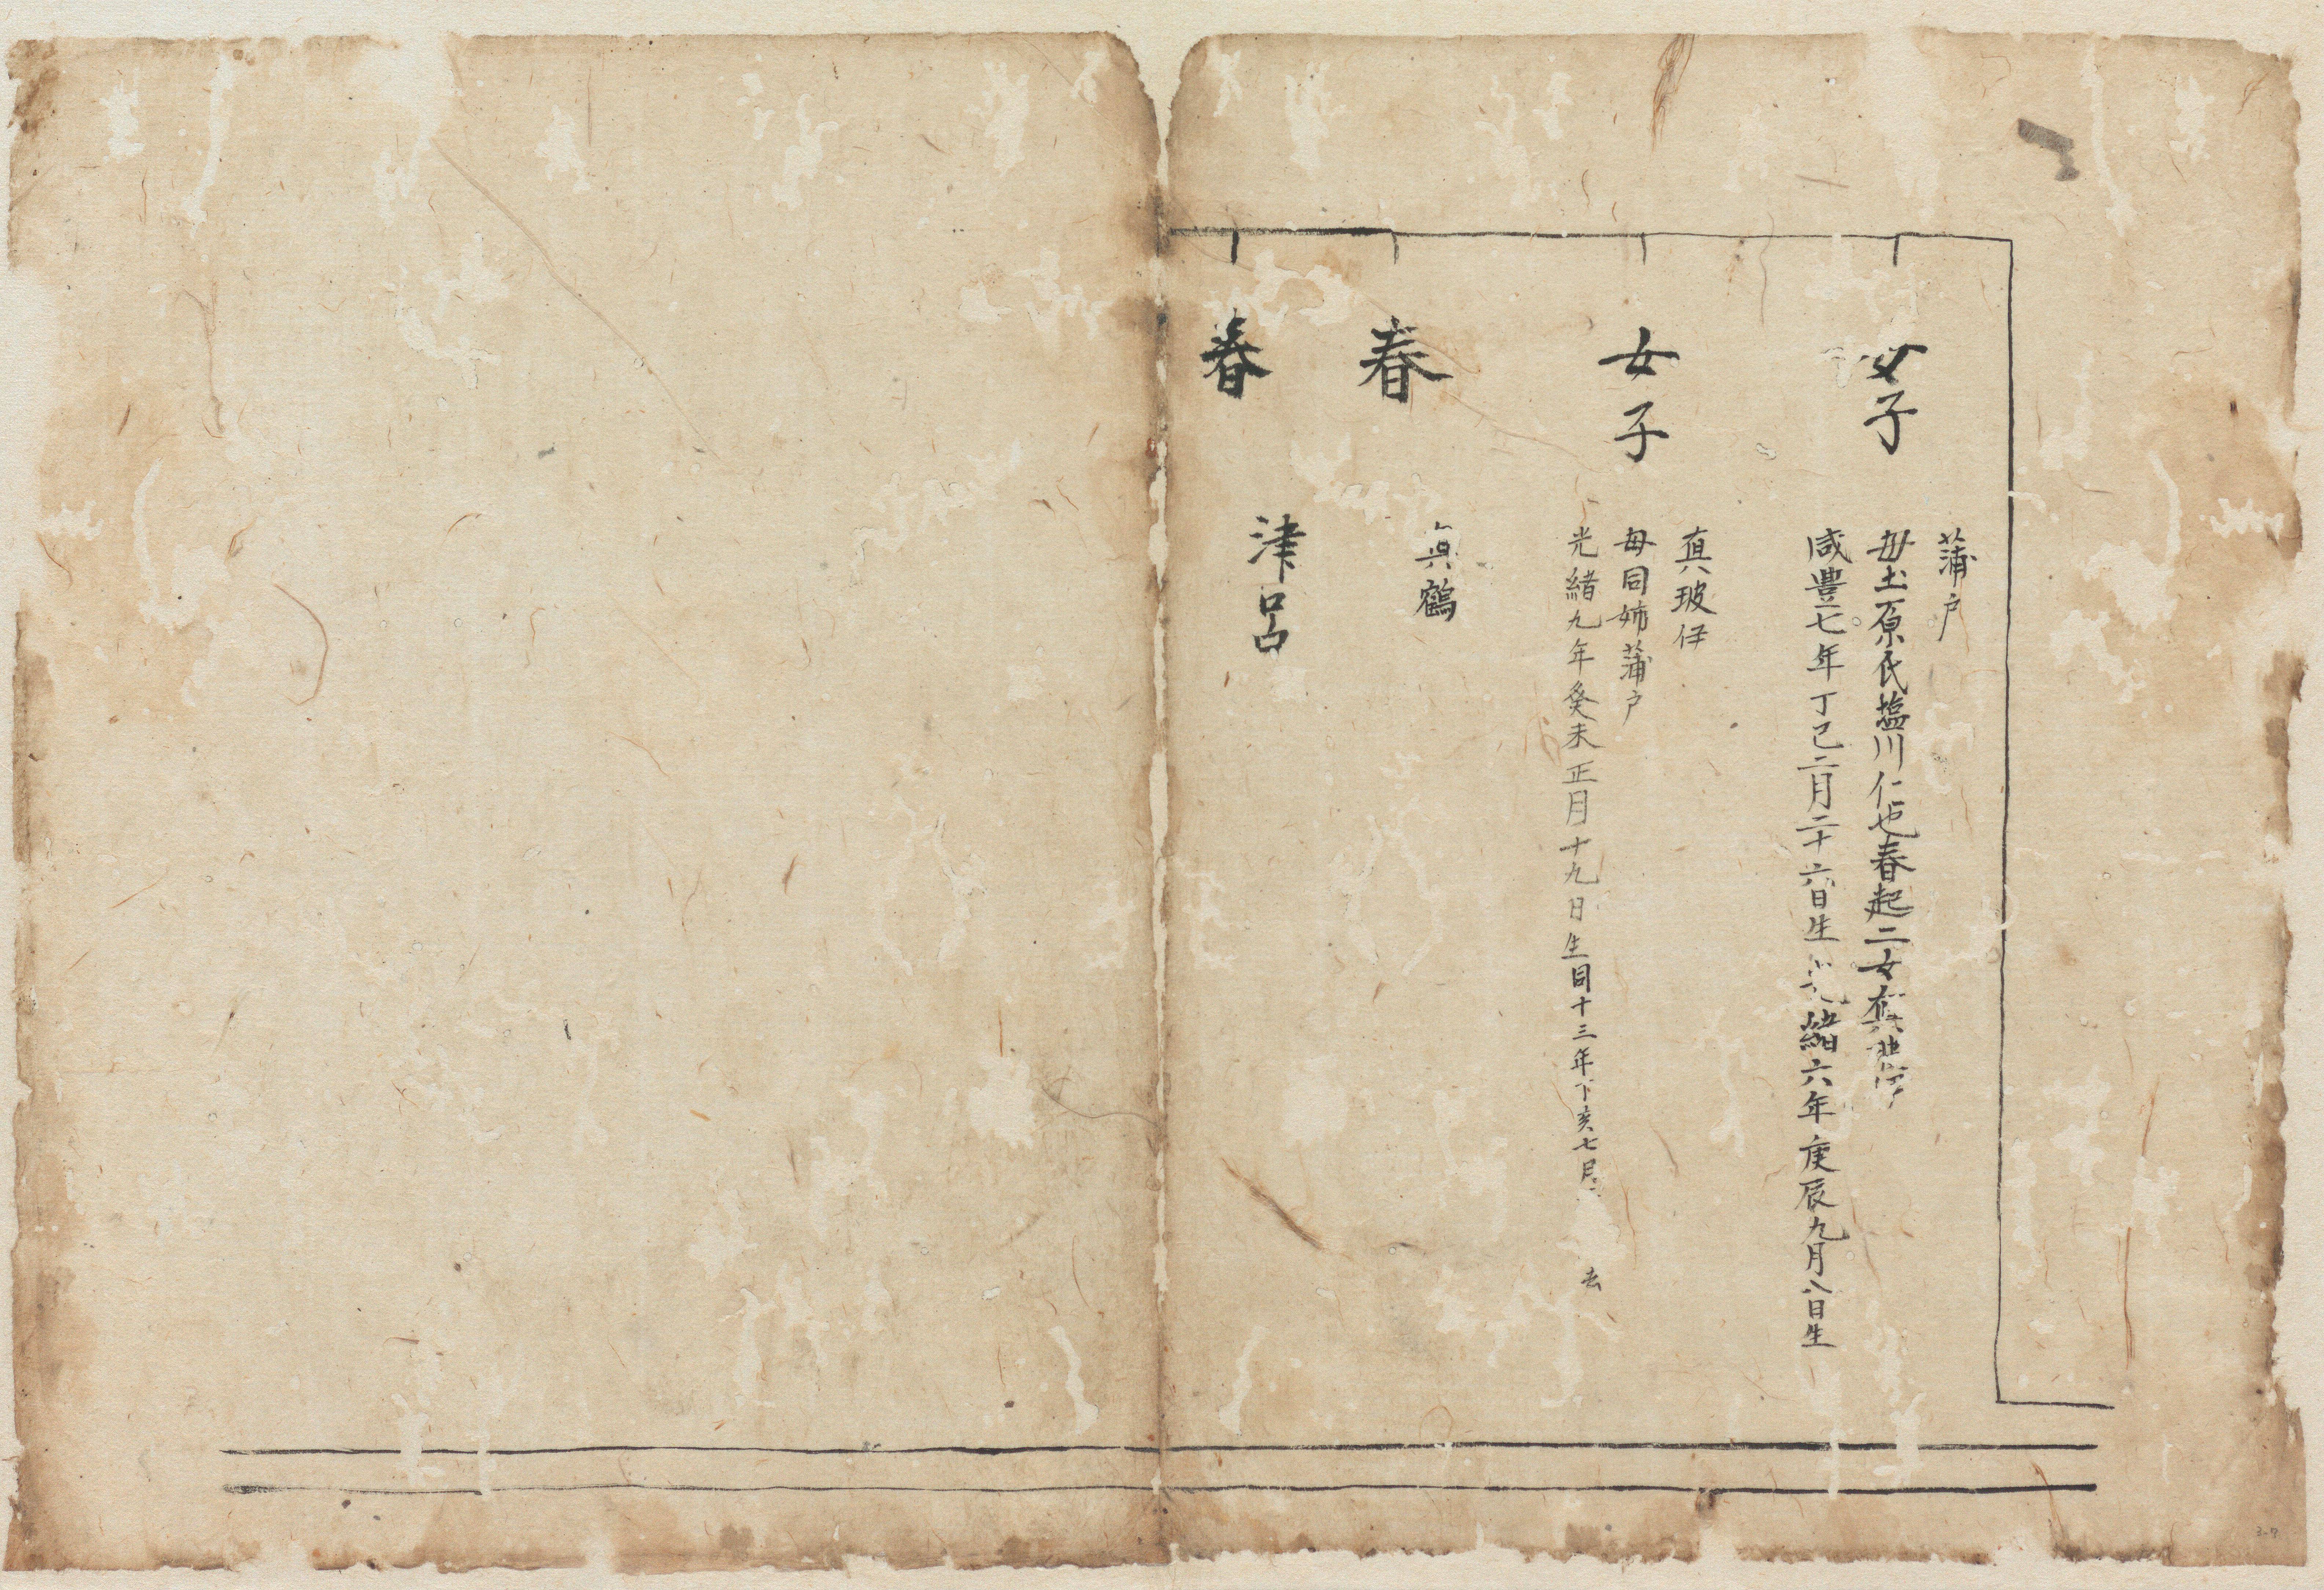 蒲戸
女子
母土原氏塩川仁也春起二女真
咸豊七年丁巳二月二十六日生 緒六年庚辰九月八日生
真玻伊
女子
母同姉蒲戸
光緒九年癸未正月十九日生同十三年丁亥七月 去
真鶴
春
津呂
春
3-7